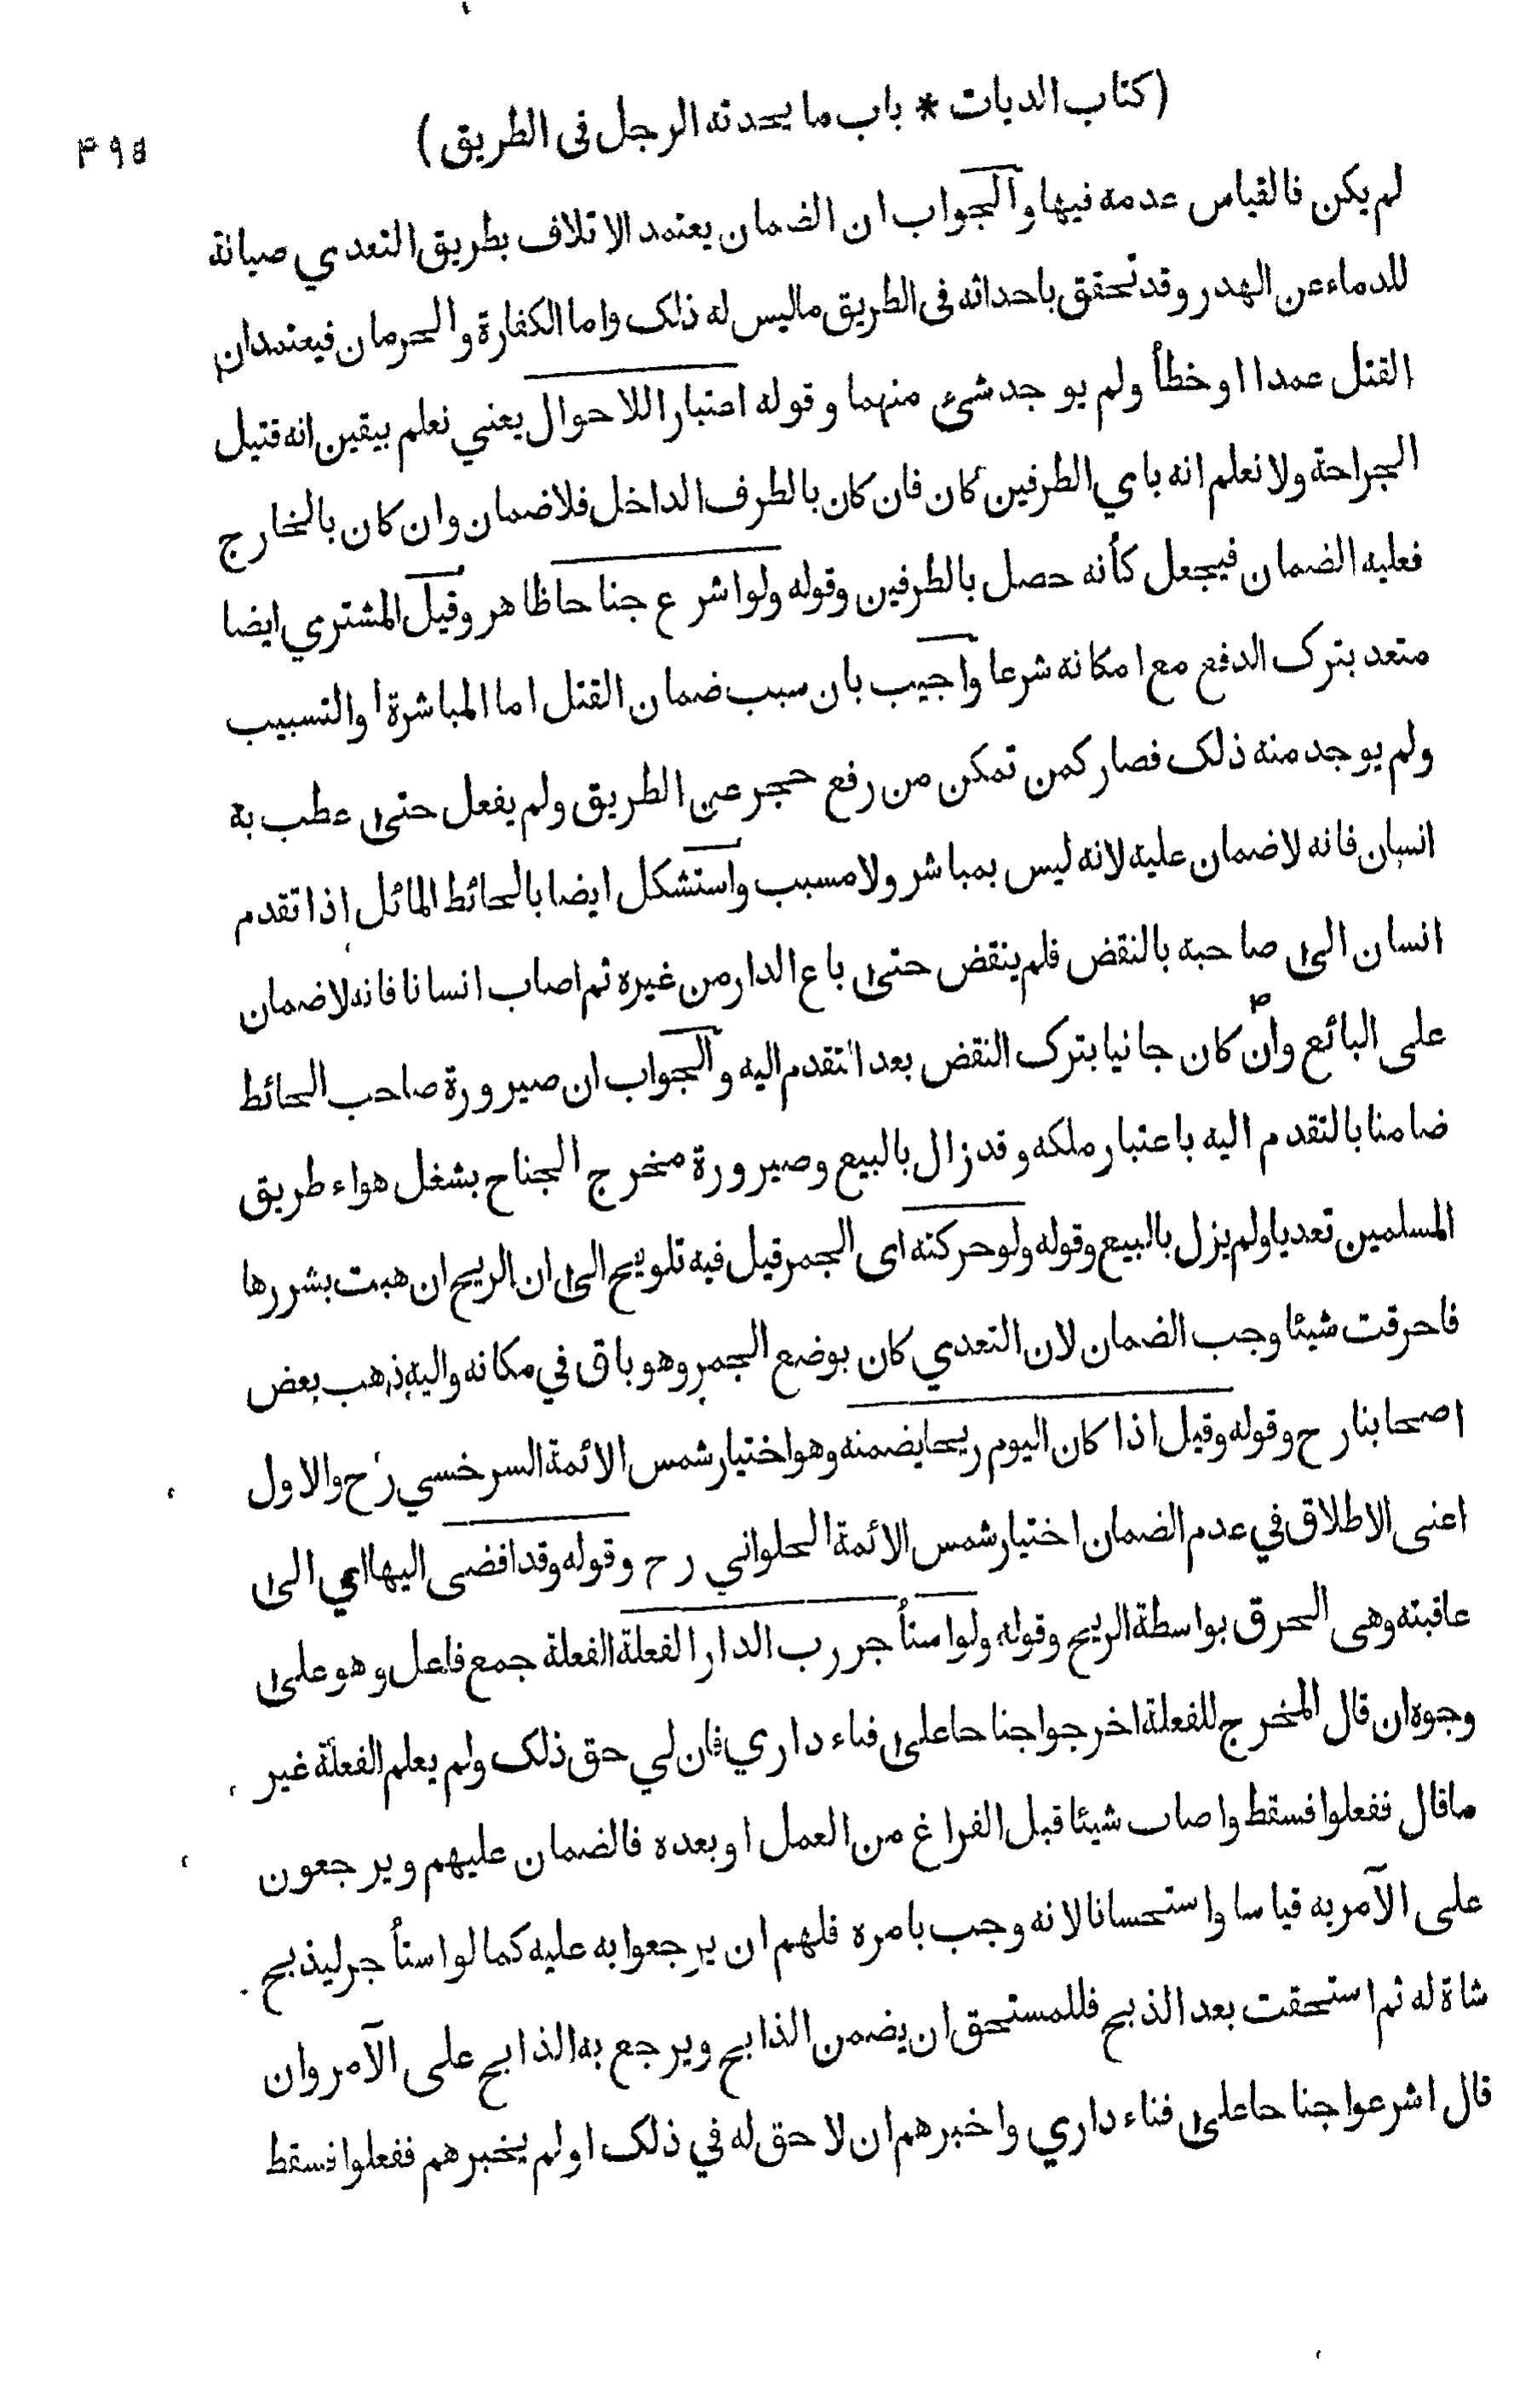 (كتاب الديات * باب ما يحدثه الرجل في الطريق)
۴۹۵
لم يكن فالقياس عدمه فيها والجواب ان الضمان يعتمد الاتلاف بطريق التعدي صيانة
للدماء عن الهدر وقد تحقق باحداثه في الطريق ما ليس له ذلك واما الكفارة والحرمان فيعتمدان
القتل عمدا او خطأ ولم يوجد شيء منهما وقوله اعتبارا للاحوال يعني نعلم بيقين انه قتيل
الجراحة ولا نعلم انه باي الطرفين كان فان كان بالطرف الداخل فلا ضمان وان كان بالخارج
فعليه الضمان فيجعل كأنه حصل بالطرفين وقوله ولو اشرع جناحا ظاهر وقيل المشتري ايضا
متعد بترك الدفع مع امكانه شرعا واجيب بان سبب ضمان القتل اما المباشرة او التسبيب
ولم يوجد منه ذلك فصار كمن تمكن من رفع حجر عن الطريق ولم يفعل حتى عطب به
انسان فانه لا ضمان عليه لانه ليس بمباشر ولا مسبب واستشكل ايضا بالحائط المائل اذا تقدم
انسان الى صاحبه بالنقض فلم ينقض حتى باع الدار من غيره ثم اصاب انسانا فانه لا ضمان
على البائع وان كان جانيا بترك النقض بعد التقدم اليه والجواب ان صيرورة صاحب الحائط
ضامنا بالتقدم اليه باعتبار ملكه وقد زال بالبيع وصيرورة مخرج الجناح بشغل هواء طريق
المسلمين تعديا ولم يزل بالبيع وقوله ولو حركته اى الجمر قيل فيه تلويح الى ان الريح ان هبت بشررها
فاحرقت شيئا وجب الضمان لان التعدي كان بوضع الجمر وهو باق في مكانه واليه ذهب بعض
اصحابنا رح وقوله وقيل اذا كان اليوم ريحا يضمنه وهو اختيار شمس الائمة السرخسي رح والاول
اعنى الاطلاق في عدم الضمان اختيار شمس الائمة الحلواني رح وقوله وقد افضى اليها اي الى
عاقبته وهى الحرق بواسطة الريح وقوله ولو استأجر رب الدار الفعلة الفعلة جمع فاعل وهو على
وجوه ان قال المخرج للفعلة اخرجوا جناحا على فناء داري فان لي حق ذلك ولم يعلم الفعلة غير
ما قال ففعلوا فسقط واصاب شيئا قبل الفراغ من العمل او بعده فالضمان عليهم ويرجعون
على الآمر به قياسا واستحسانا لانه وجب بامره فلهم ان يرجعوا به عليه كما لو استأجر ليذبح
شاة له ثم استحقت بعد الذبح فللمستحق ان يضمن الذابح ويرجع به الذابح على الآمر وان
قال اشرعوا جناحا على فناء داري واخبرهم ان لا حق له في ذلك او لم يخبرهم ففعلوا فسقط